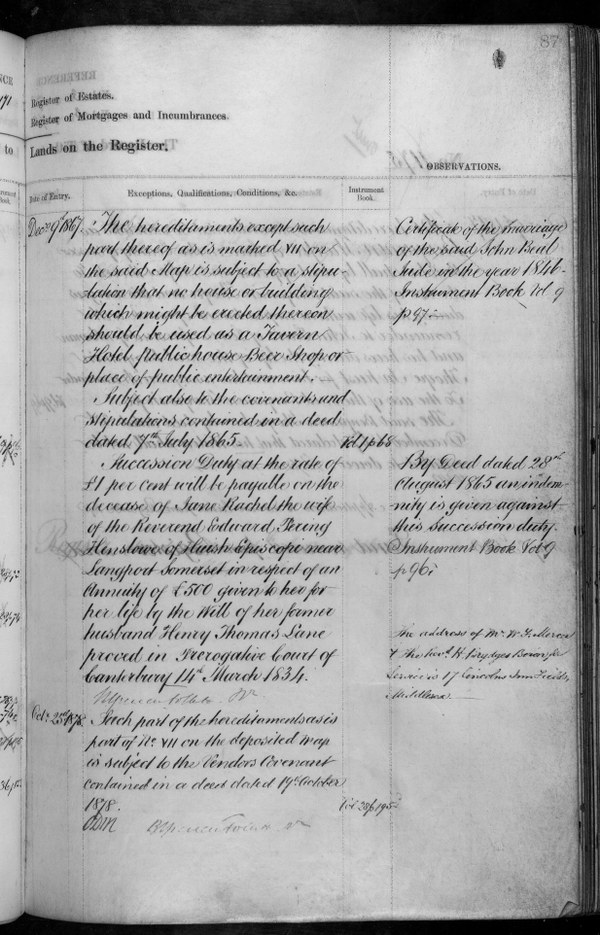 87
Register of Estates.
Register of Mortgages and Incumbrances.
Lands on the Register.
OBSERVATIONS.
Date of Entry.
Exceptions, Qualifications, Conditions, &c.
Instrument Book.
Decr 19th 1867.
The hereditaments except such
part thereof as is marked VII on
the said Map is subject to a stipu-
lation that no house or building
which might be erected thereon
should be used as a Tavern
Hotel public house Beer Shop or
place of public entertainment.
Subject also to the covenants and
stipulations contained in a deed
dated 7th July 1865.
Vol 1 p 68
Succession Duty at the rate of
£1 per cent will be payable on the
decease of Jane Rachel the wife
of the Reverend Edward
Henslowe of Huish Episcopi near
Langport Somerset in respect of an
Annuity of £500 given to her for
her life by the Will of her former
husband Henry Thomas Lane
proved in Prerogative Court of
Canterbury 14th March 1834.
Octr 25th 1878.
Such part of the hereditaments as is
part of No VII on the deposited map
is subject to the Vendors Covenant
contained in a deed dated 19th October
1878.
Certificate of the marriage
of the said John
Jude in the year 1846
Instrument Book Vol 9
p 97
By Deed dated 28th
August 1865 an indem-
nity is given against
this Succession duty.
Instrument Book Vol 9
p 96
The address of Mr W
& the Revd H Brydges
Service is 17 Lincolns Inn Fields
Middlesex